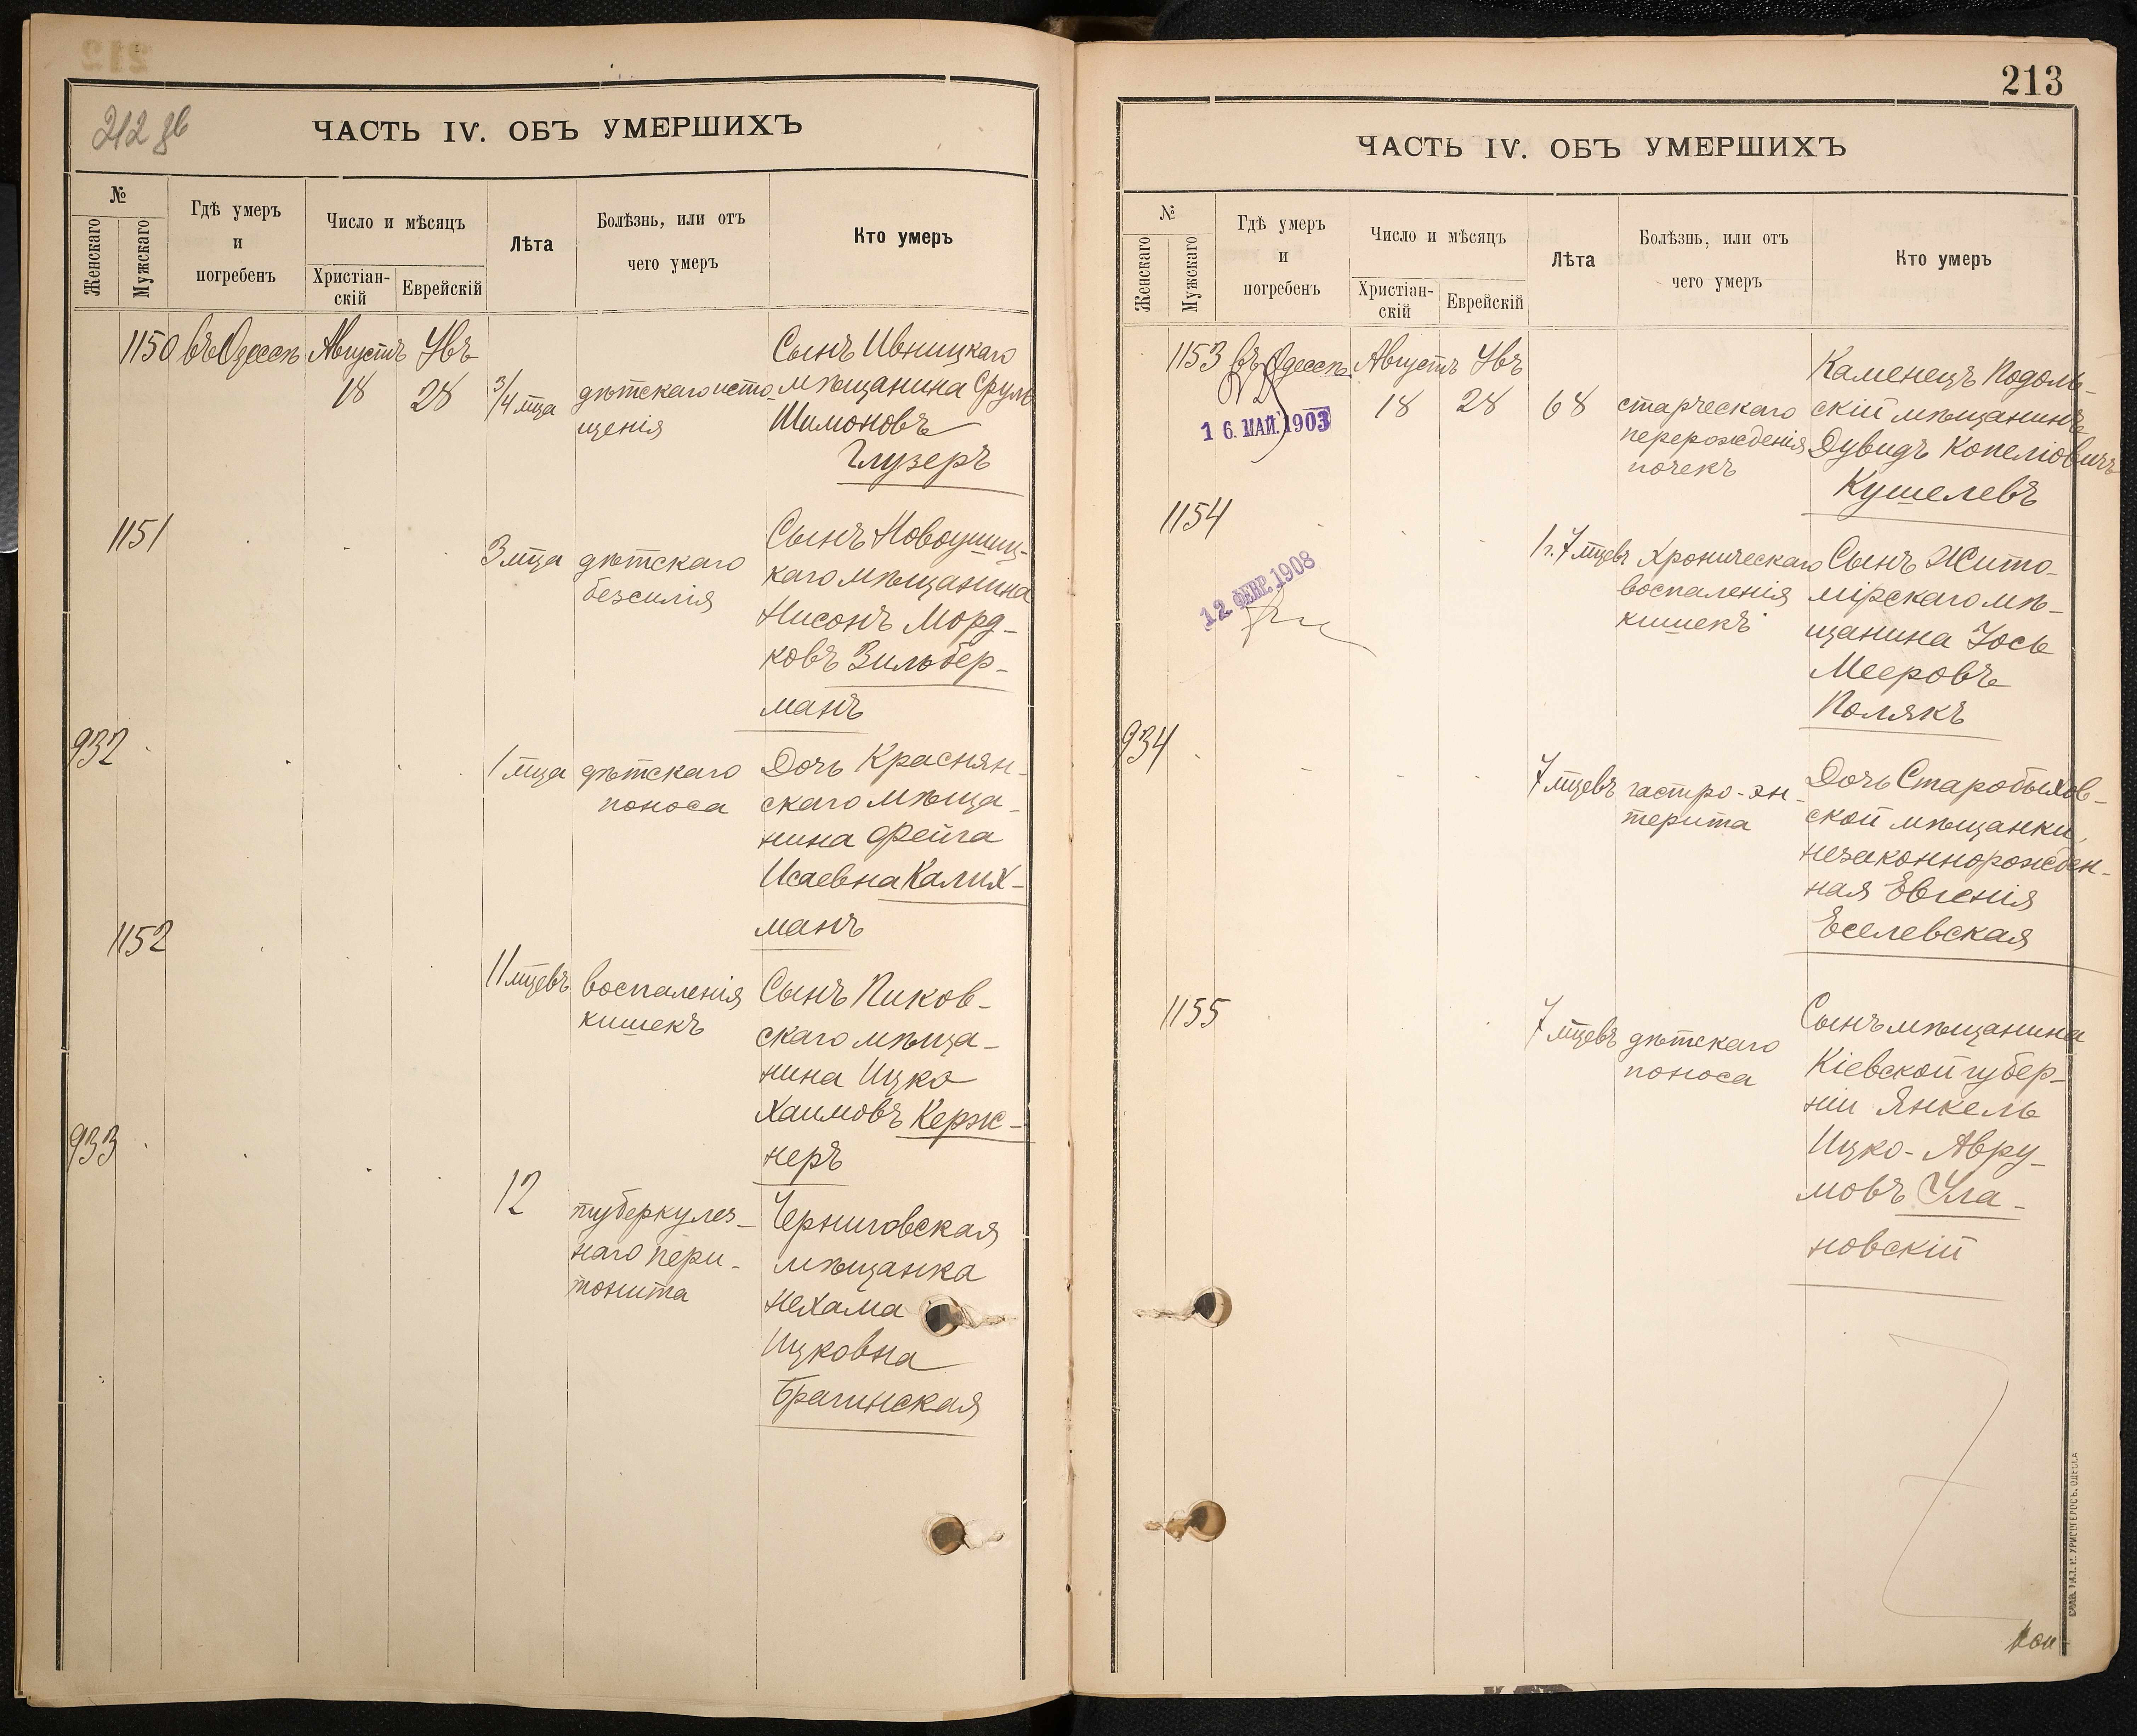 212 зв
ЧАСТЬ IV. ОБЪ УМЕРШИХЪ
№
Женскаго
Мужскаго
Гдѣ умеръ
и
погребенъ
Число и мѣсяцъ
Христіан-
скій
Еврейскій
Лѣта
Болѣзнь, или отъ
чего умеръ
Кто умеръ
1150 въ Одессѣ Августъ Увъ
18 28 3/4 мца
дѣтскаго исто-
щенія
Сынъ Ивницкаго
мѣщанина Сруль
Шимоновъ
Глузеръ
1151
3 мца дѣтскаго
безсилія
Сынъ Новоушиц-
каго мѣщанина
Нисонъ Морд-
ковъ Зильбер-
манъ
932
1 мца дѣтскаго
поноса
Дочь Краснян-
скаго мѣща-
нина Фейга
Исаевна Калих-
манъ
1152
11 мцевъ воспаленія
кишекъ
Сынъ Пиков-
скаго мѣща-
нина Ицко
Хаимовъ Керж-
неръ
933
12 туберкулез-
наго пери-
тонита
Черниговская
мѣщанка
Нехама
Ицковна
Брагинская
213
ЧАСТЬ IV. ОБЪ УМЕРШИХЪ
№
Женскаго
Мужскаго
Гдѣ умеръ
и
погребенъ
Число и мѣсяцъ
Христіан-
скій
Еврейскій
Лѣта
Болѣзнь, или отъ
чего умеръ
Кто умеръ
1153 въ Одессѣ Августъ Увъ
16. МАЙ. 1903
18 28 68 старческаго
перерожденія
почекъ
Каменецъ Подоль-
скій мѣщанинъ
Дувидъ Копеліовичъ
Кушелевъ
1154
12. ФЕВР. 1908
1 г. 7 мцевъ Хроническаго
воспаленія
кишекъ
Сынъ Жито-
мірскаго мѣ-
щанина Іось
Мееровъ
Полякъ
934
7 мцевъ гастро-эн-
терита
Дочь Старобыхов-
ской мѣщанки,
незаконнорожден-
ная Евгенія
Еселевская
1155
7 мцевъ дѣтскаго
поноса
Сынъ мѣщанина
Кіевской губер-
ніи Янкель
Ицко-Авру-
мовъ Ула-
новскій